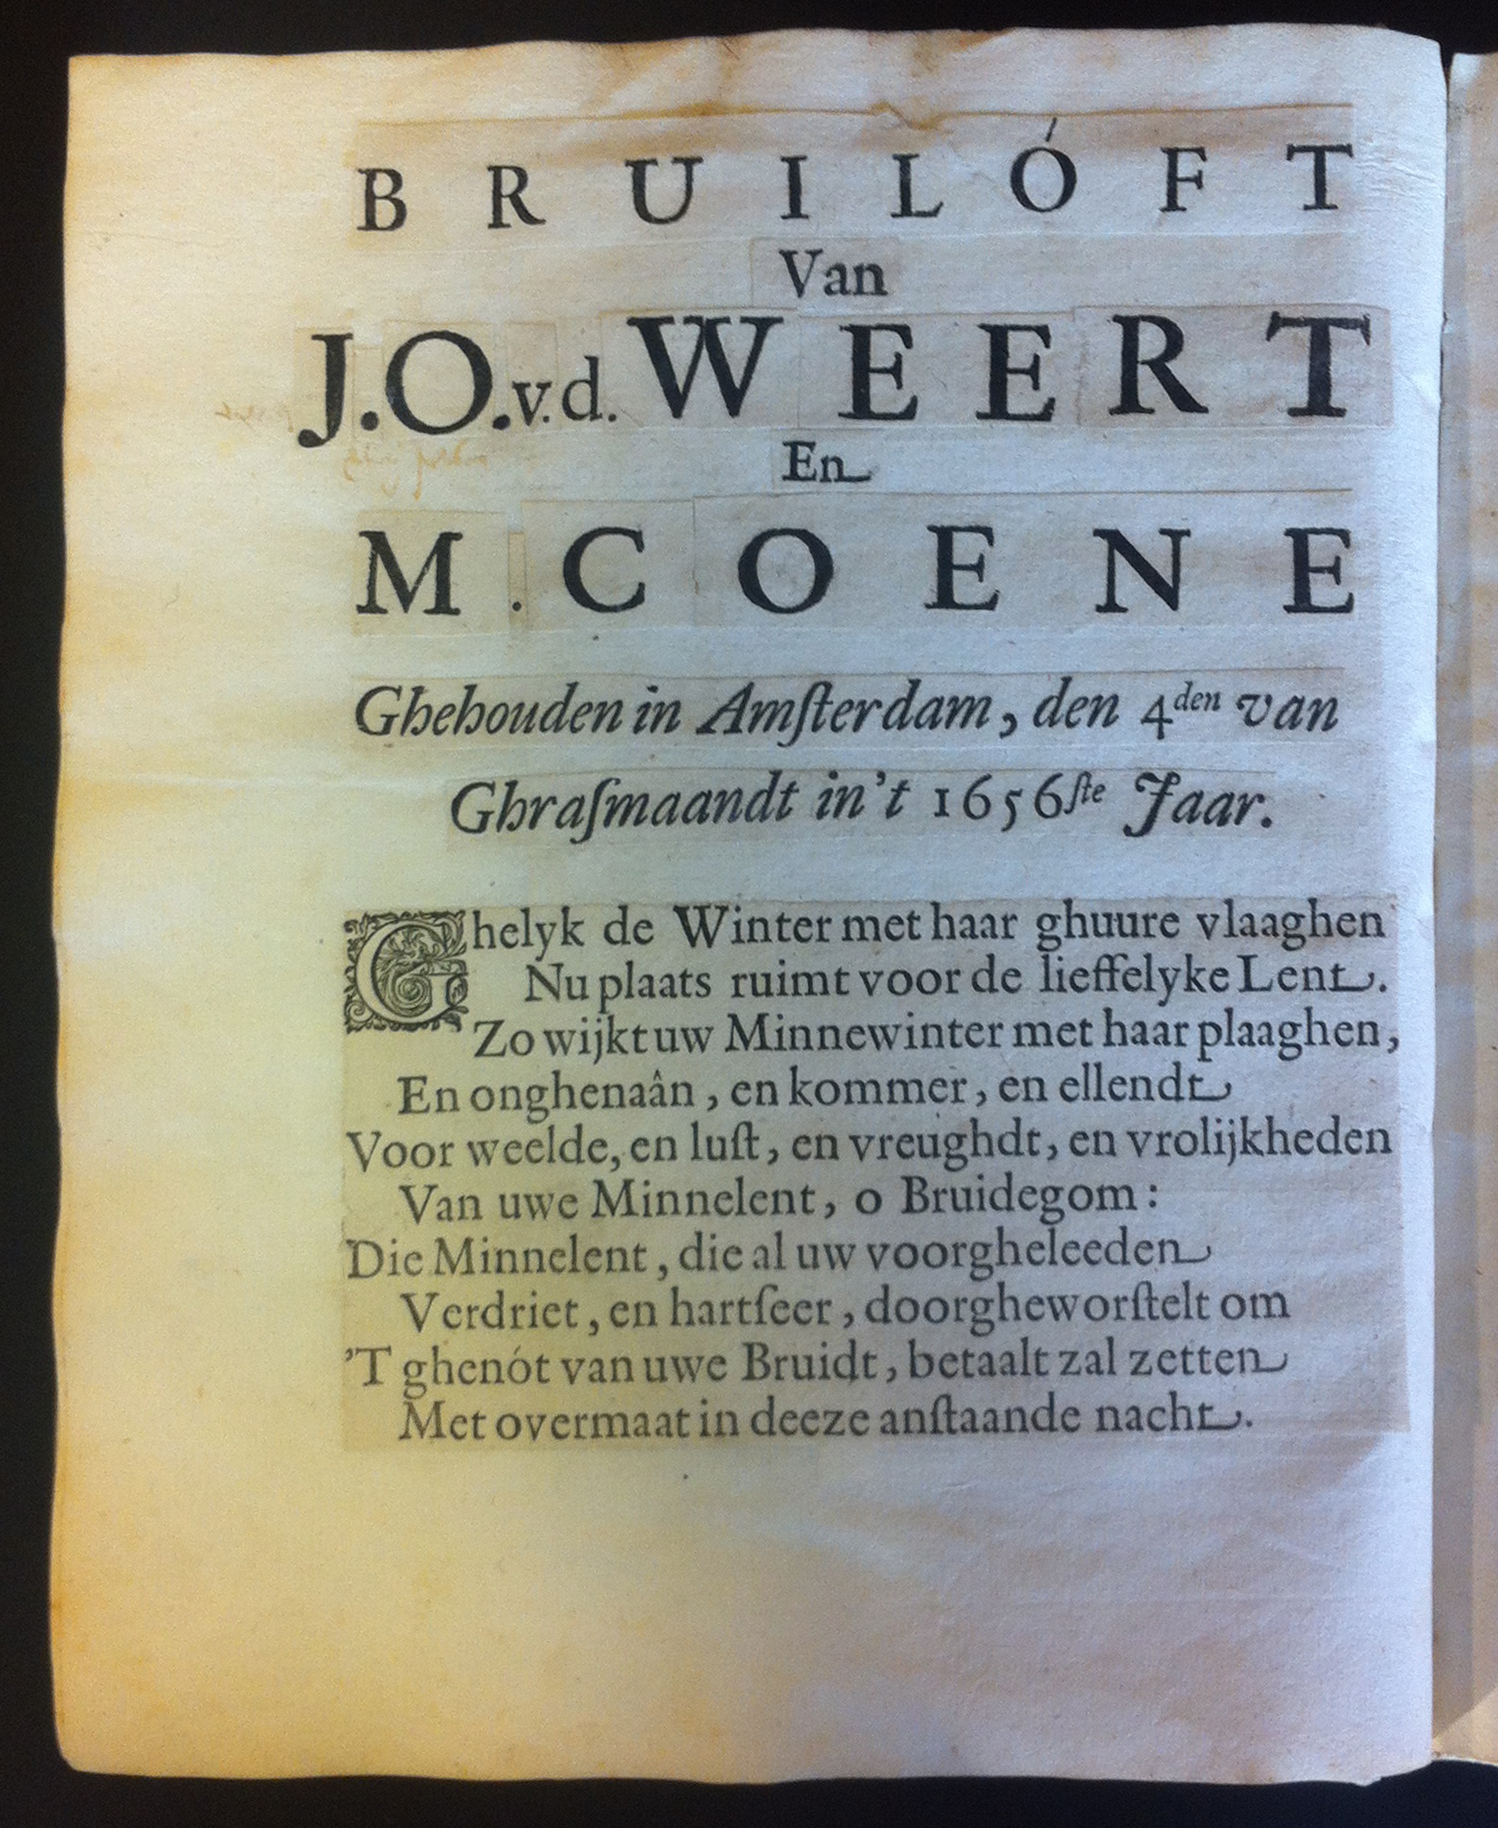 BRUILÓFT
Van
J.O.v.d. WEERT
En
M. COENE
Ghehouden in Amſterdam, den 4den van
Ghraſmaandt in't 1656ſte Jaar.
Ghelyk de Winter met haar ghuure vlaaghen
Nu plaats ruimt voor de lieffelyke Lent.
Zo wijkt uw Minnewinter met haar plaaghen,
En onghenaân, en kommer, en ellendt
Voor weelde, en luſt, en vreughdt, en vrolijkheden
Van uwe Minnelent, o Bruidegom:
Die Minnelent, die al uw voorgheleeden
Verdriet, en hartſeer, doorgheworſtelt om
'T ghenót van uwe Bruidt, betaalt zal zetten
Met overmaat in deeze anſtaande nacht.